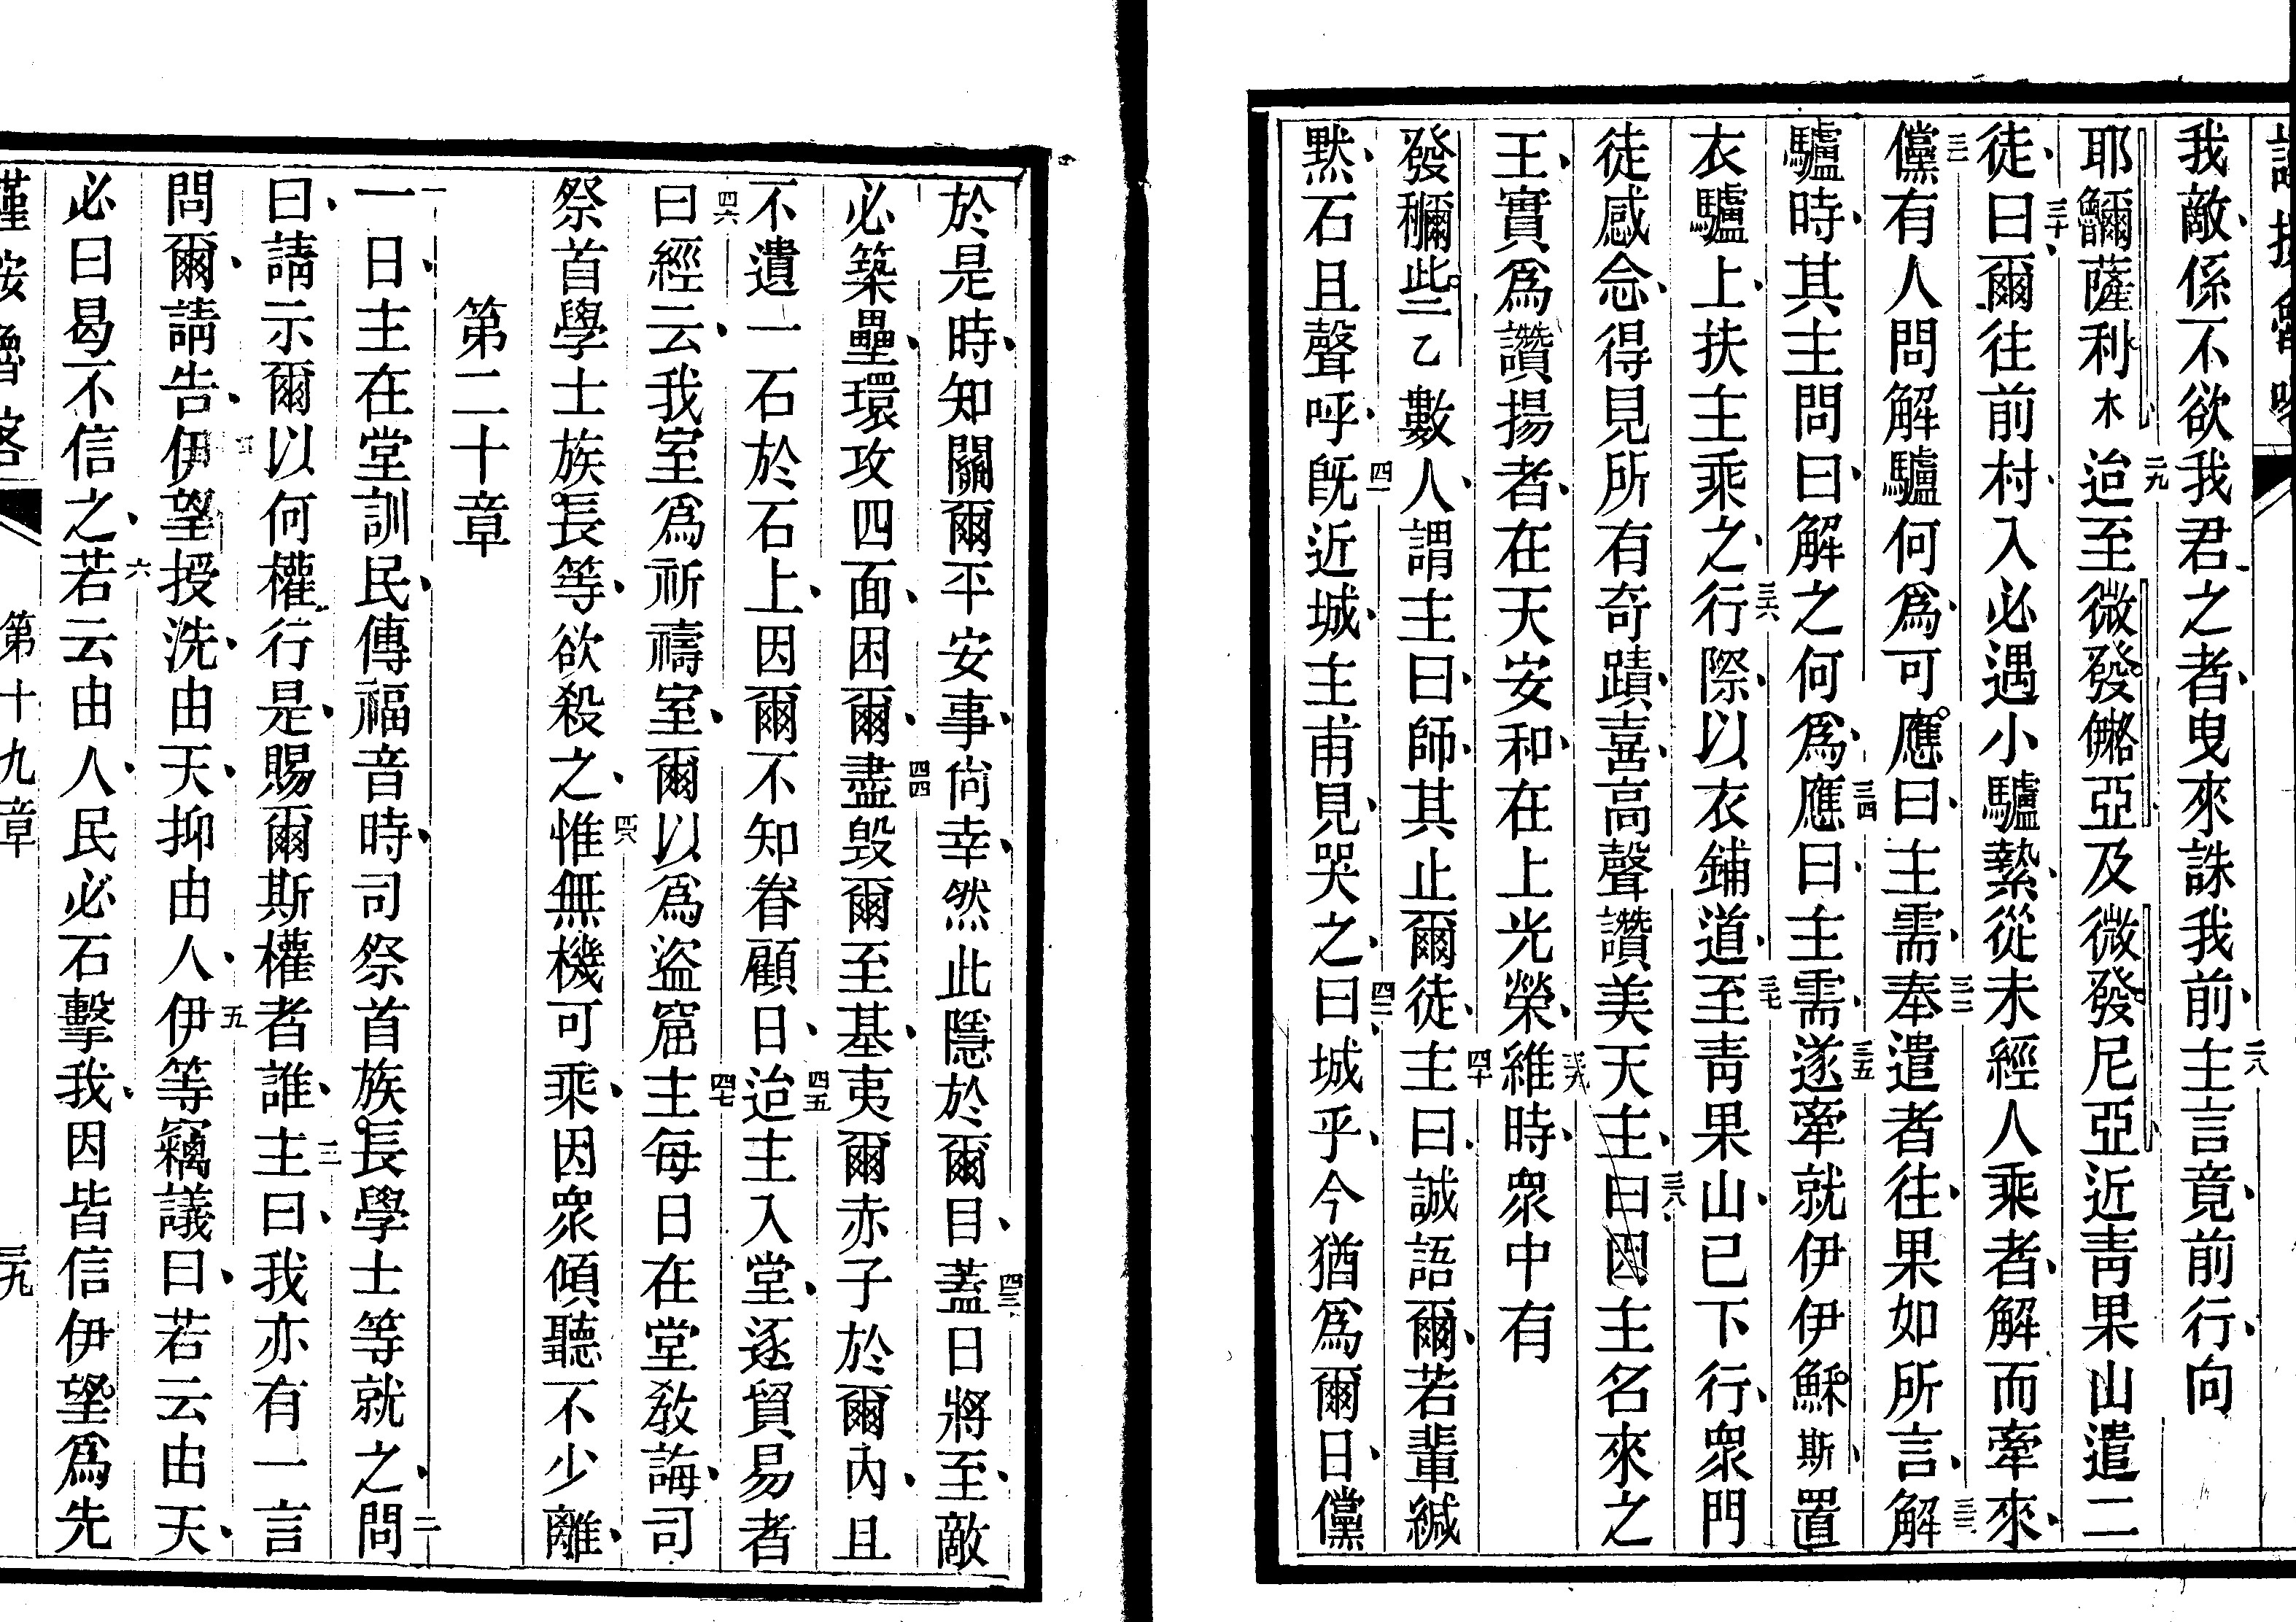 我敵係不欲我君之者曳來誅我前二八主言竟前行向
耶𩼪薩利木二九迨至微發𱇎亞及微發尼亞近靑果山遣二
徒曰三十爾往前村入必遇小驢縶從未經人乘者解而牽來
三一儻有人問解驢何爲可應曰主需三二奉遣者往果如所言三三解
驢時其主問曰解之何爲三四應曰主需三五遂牽就伊伊穌斯置
衣驢上扶主乘之三六行際以衣鋪道三七至靑果山已下行衆門
徒感念得見所有奇蹟喜高聲讚美天主三八曰因主名來之
王實爲讚揚者在天安和在上光榮三九維時衆中有
發穪此二乙數人謂主曰師其止爾徒四十主曰誠語爾若輩緘
默石且聲呼四一旣近城主甫見哭之四二曰城乎今猶爲爾日儻
於是時知關爾平安事尙幸然此隱於爾目四三蓋日將至敵
必築壘環攻四面困爾四四盡毀爾至基夷爾赤子於爾內且
不遺一石於石上因爾不知眷顧日四五迨主入堂逐貿易者
四六曰經云我室爲祈禱室爾以爲盜窟四七主每日在堂敎誨司
祭首學士族長等欲殺之四八惟無機可乘因衆傾聽不少離
第二十章
一一日主在堂訓民傳福音時司祭首族長學士等就之二問
曰請示爾以何權行是賜爾斯權者誰三主曰我亦有一言
問爾請告四伊望授洗由天抑由人五伊等竊議曰若云由天
必曰曷不信之六若云由人民必石擊我因皆信伊望爲先
第十九章
三九